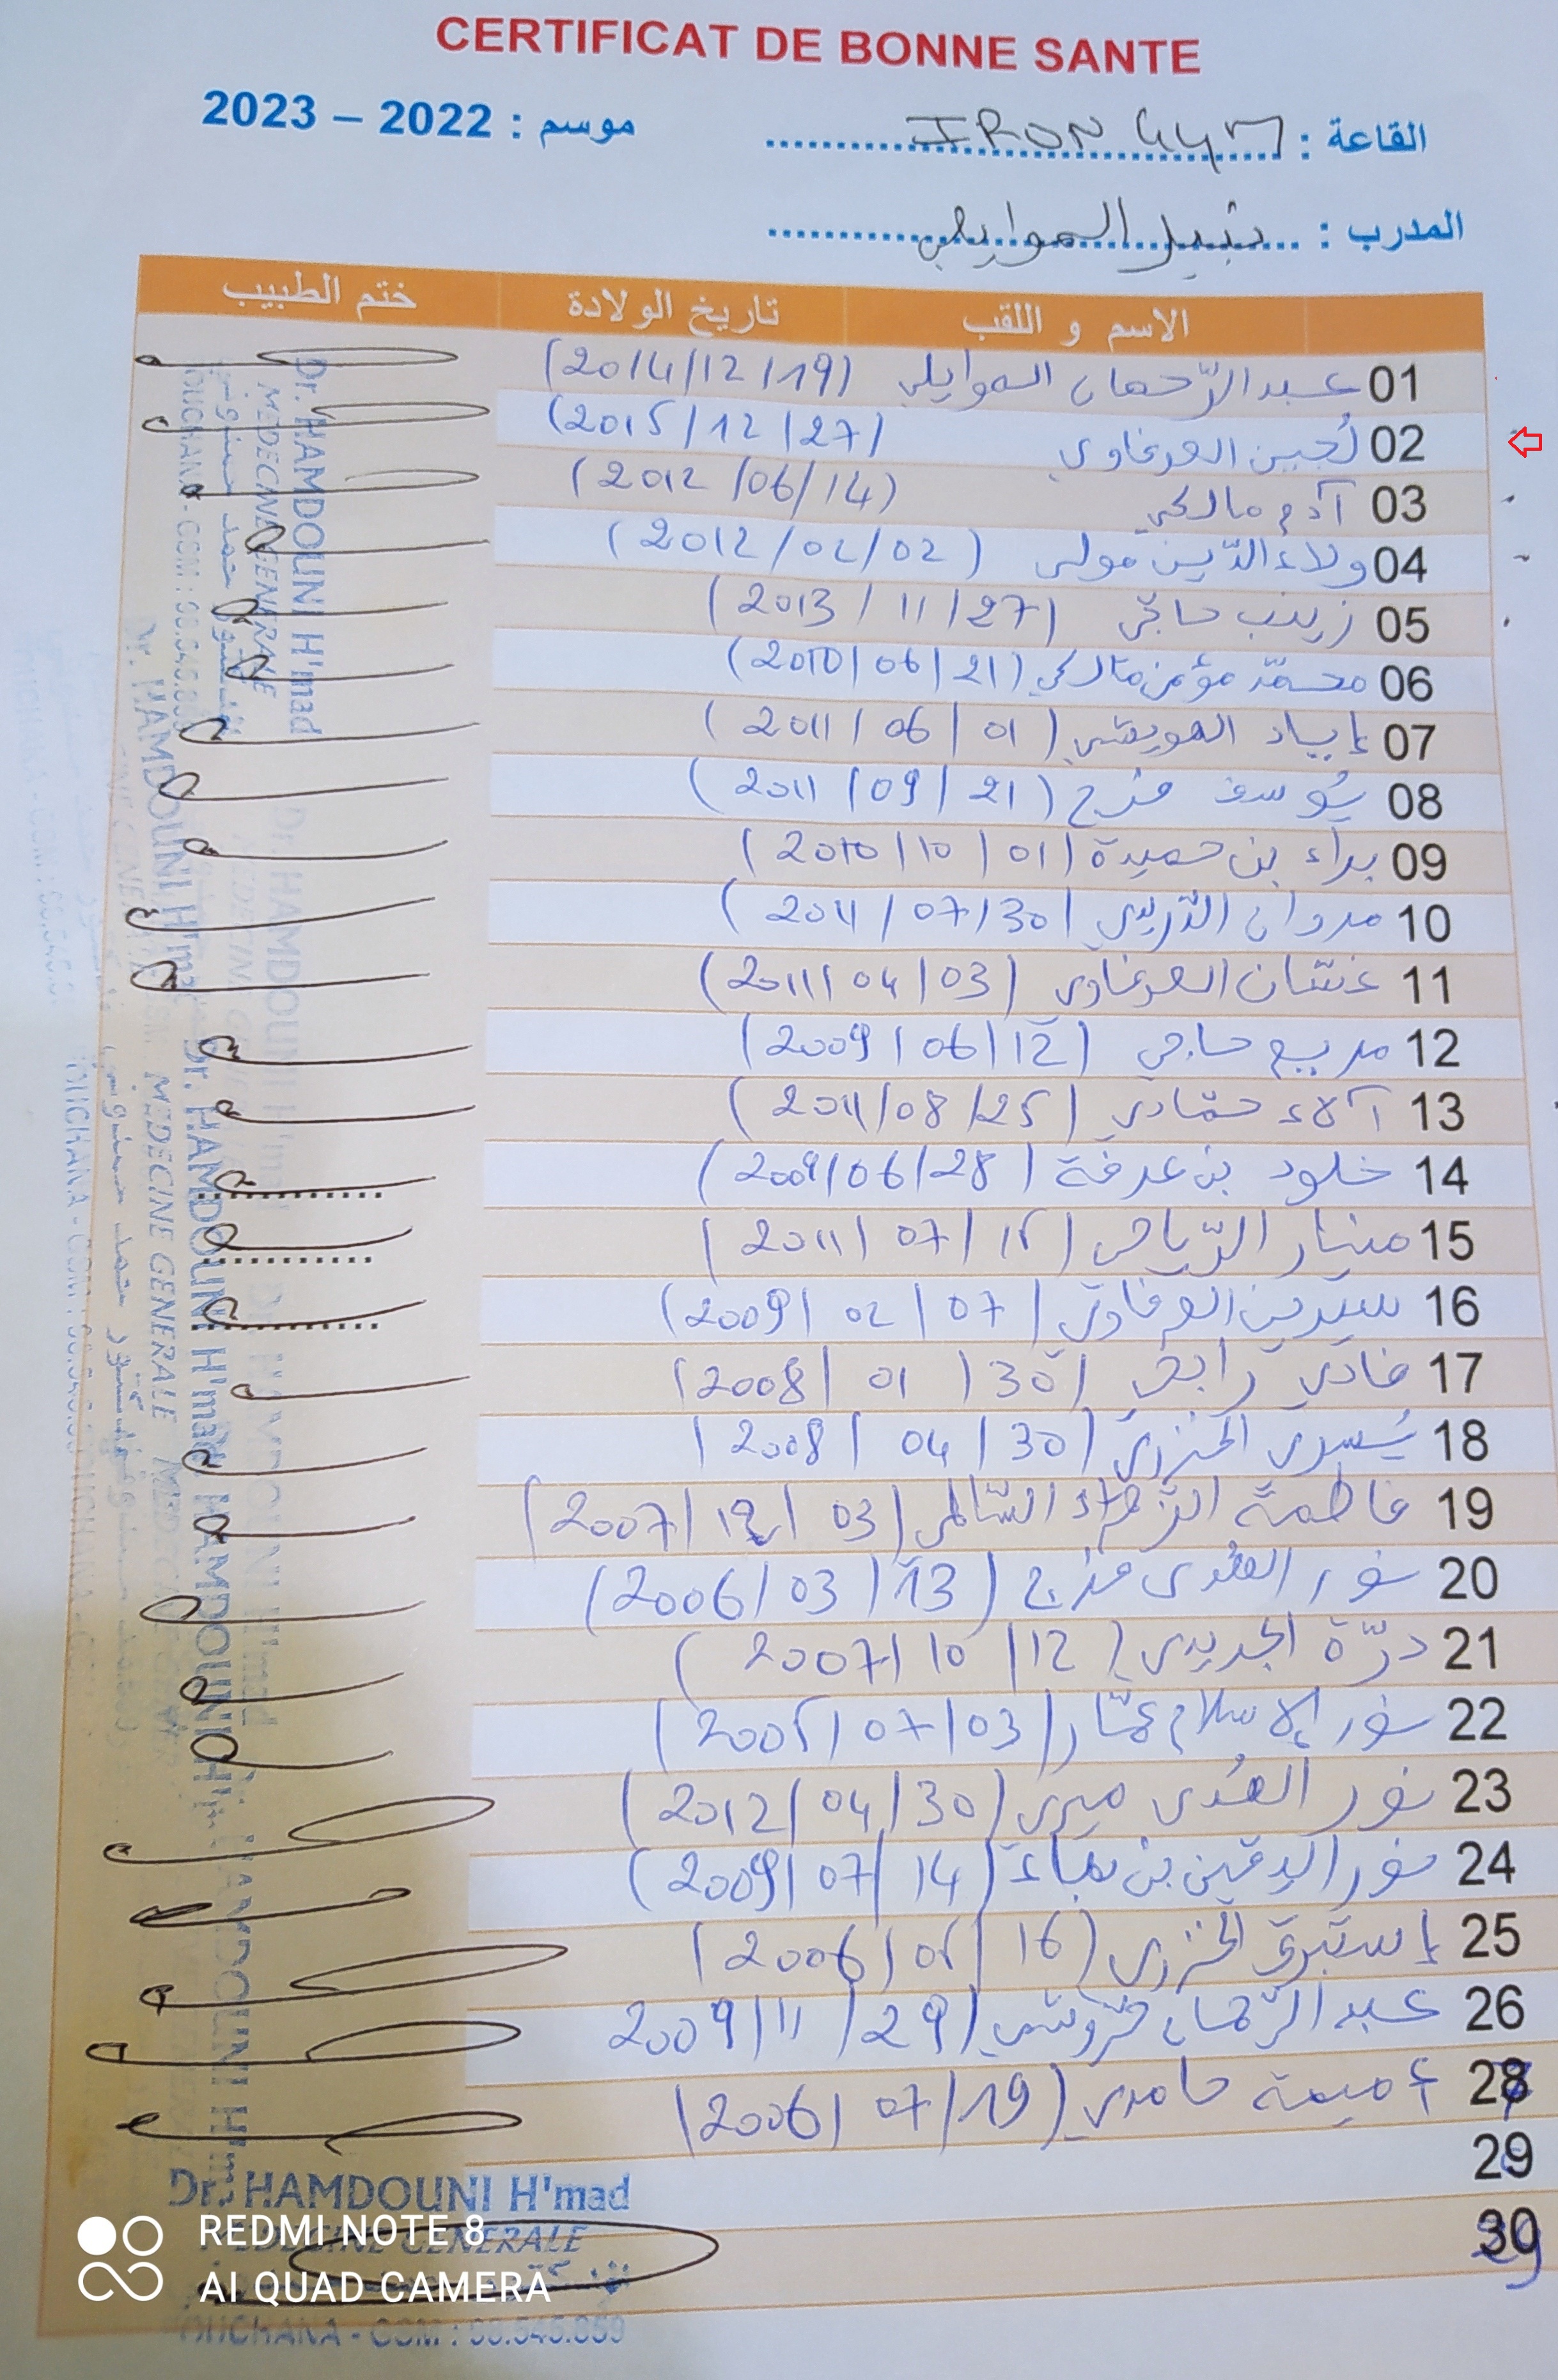 CERTIFICAT DE BONNE SANTE
القاعة : IRON GYM
موسم : 2022 – 2023
المدرب : نبيل الهوايلي
الاسم و اللقب تاريخ الولادة ختم الطبيب
01 عبد الرّحمان الهوايلي (2014/12/19)
02 لُجين العرفاوي (2015/12/27)
03 آدم مالكي (2012/06/14)
04 ولاء الدّين مولى (2012/02/02)
05 زينب حاجّي (2013/11/27)
06 محمّد مؤمن مالكي (2010/06/21)
07 إياد الهويشي (2011/06/01)
08 يُوسف فرج (2011/09/21)
09 براء بن حميدة (2010/10/01)
10 مروان الدّريدي (2011/07/30)
11 غسّان العرفاوي (2011/04/03)
12 مريم حاجي (2009/06/12)
13 آلاء حمّادي (2011/08/25)
14 خلود بن عرفة (2009/06/28)
15 منار الرّياحي (2011/07/15)
16 سيرين العرفاوي (2009/02/07)
17 فادي رابحي (2008/01/30)
18 يُسرى الخزري (2008/04/30)
19 فاطمة الزّهراء السّالمي (2007/12/03)
20 نور الهُدى فرج (2006/03/13)
21 درّة الجديدي (2007/10/12)
22 نور الإسلام عمّار (2005/07/03)
23 نور الهُدى ميري (2012/04/30)
24 نور اليقين بن (2009/07/14)
25 إستبرق الخزري (2006/05/16)
26 عبد الرّحمان (2009/11/29
28 أميمة حامدي (2006/07/19)
29
30
Dr. HAMDOUNI H'mad
MEDECINE GENERALE
REDMI NOTE 8
AI QUAD CAMERA